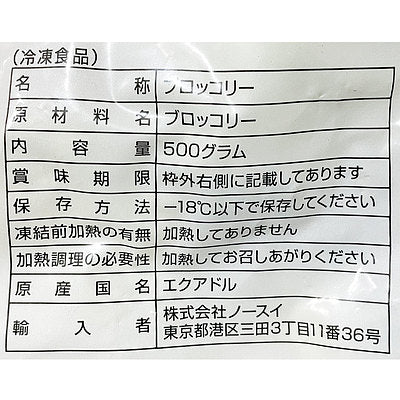 (冷凍食品)
名称 ブロッコリー
原材料名 ブロッコリー
内容量 500グラム
賞味期限 枠外右側に記載してあります
保存方法 −18℃以下で保存してください
凍結前加熱の有無 加熱してありません
加熱調理の必要性 加熱してお召しあがりください
原産国名 エクアドル
輸入者 株式会社ノースイ
東京都港区三田3丁目11番36号